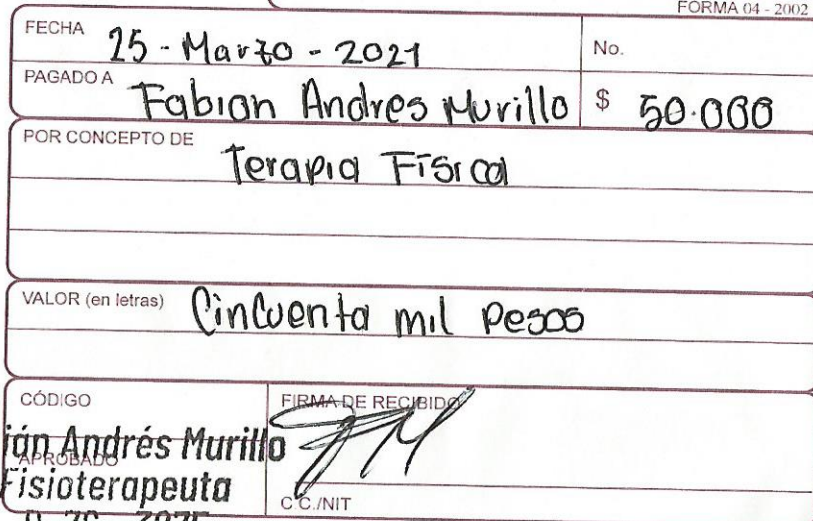 FORMA 04 - 2002
FECHA 25 - Marzo - 2021
No.
PAGADO A Fabian Andres Murillo $ 50.000
POR CONCEPTO DE Terapia Física
VALOR (en letras) Cincuenta mil pesos
CÓDIGO
FIRMA DE RECIBIDO
ián Andrés Murillo
APROBADO
Fisioterapeuta
C.C./NIT